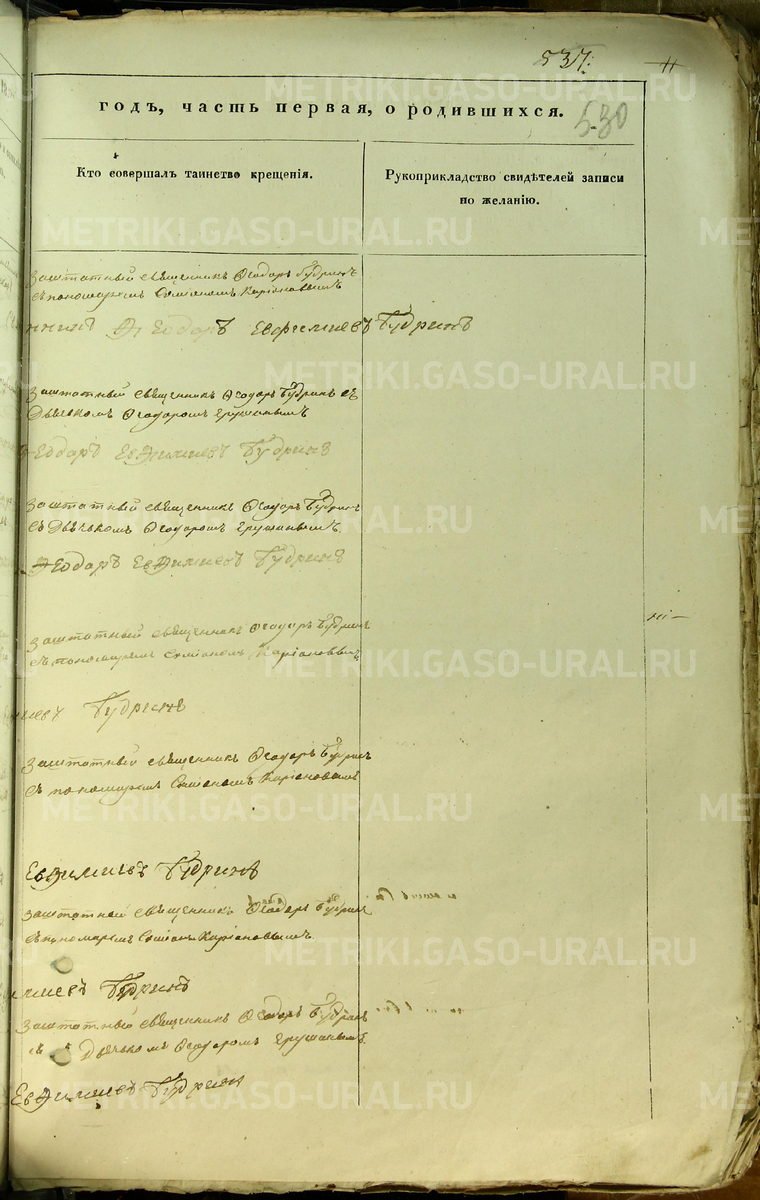 537.
530
годъ, часть первая, о родившихся.
Кто совершалъ таинство крещенія.
Рукоприкладство свидѣтелей записи
по желанію.
Заштатный священникъ Ѳеодоръ Будринъ
съ пономаремъ Симіономъ Каріоновымъ
Ѳеодоръ Евфимиевъ Будринъ
Заштатный священникъ Ѳеодоръ Будринъ съ
Дьячкомъ Ѳеодоромъ
Ѳеодоръ Евѳимиевъ Будринъ
Заштатный священникъ Ѳеодоръ Будринъ
съ Дьячькомъ Ѳеодоромъ
Ѳеодоръ Евѳимиевъ Будринъ
Заштатный священникъ Ѳеодоръ Будринъ
съ пономаремъ Симіономъ Каріоновымъ
Будринъ
Заштатный священникъ Ѳеодоръ Будринъ
съ пономаремъ Симіономъ Каріоновымъ
Евѳимиевъ Будринъ
Заштатный священникъ Ѳеодоръ Будринъ
съ пономаремъ Каріоновымъ
Будринъ
Заштатный священникъ Ѳеодоръ Будринъ
съ Дьячькомъ Ѳеодоромъ
Евѳимиевъ Будрин
METRIKI.GASO-URAL.RU